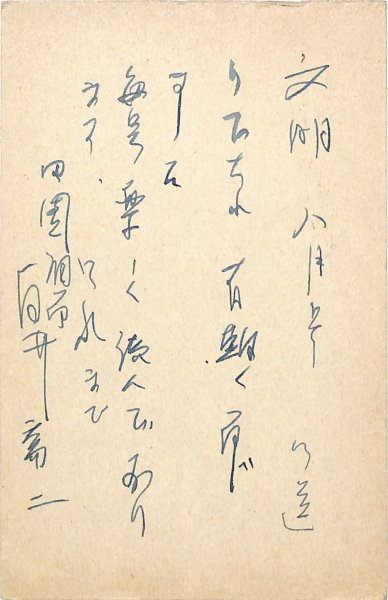 文明 八月号 御送
り下され 有難く存じ
毎号楽しく読んでおり
ます、 御礼まで
田園調布
白井喬二